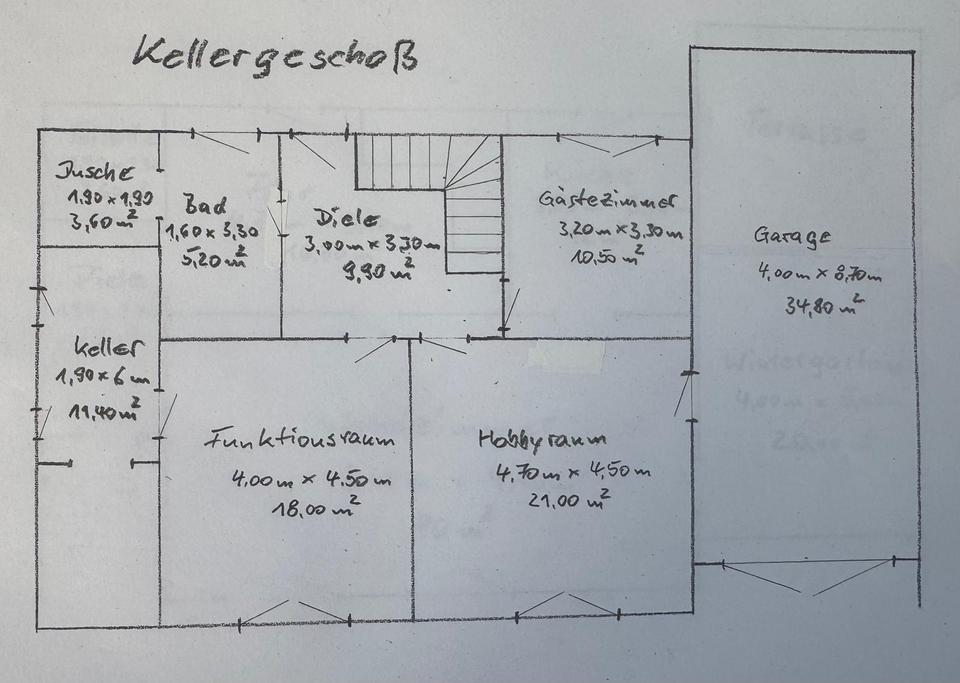 Kellergeschoß
Dusche
1,90 x 1,90
3,60 m²
Bad
1,60 x 3,30
5,20 m²
Diele
3,00 m x 3,30 m
9,90 m²
Gästezimmer
3,20 m x 3,30 m
10,50 m²
Garage
4,00 m x 8,70 m
34,80 m²
Keller
1,90 x 6 m
11,40 m²
Funktionsraum
4,00 m x 4,50 m
18,00 m²
Hobbyraum
4,70 m x 4,50 m
21,00 m²
Terrasse
Wintergarten